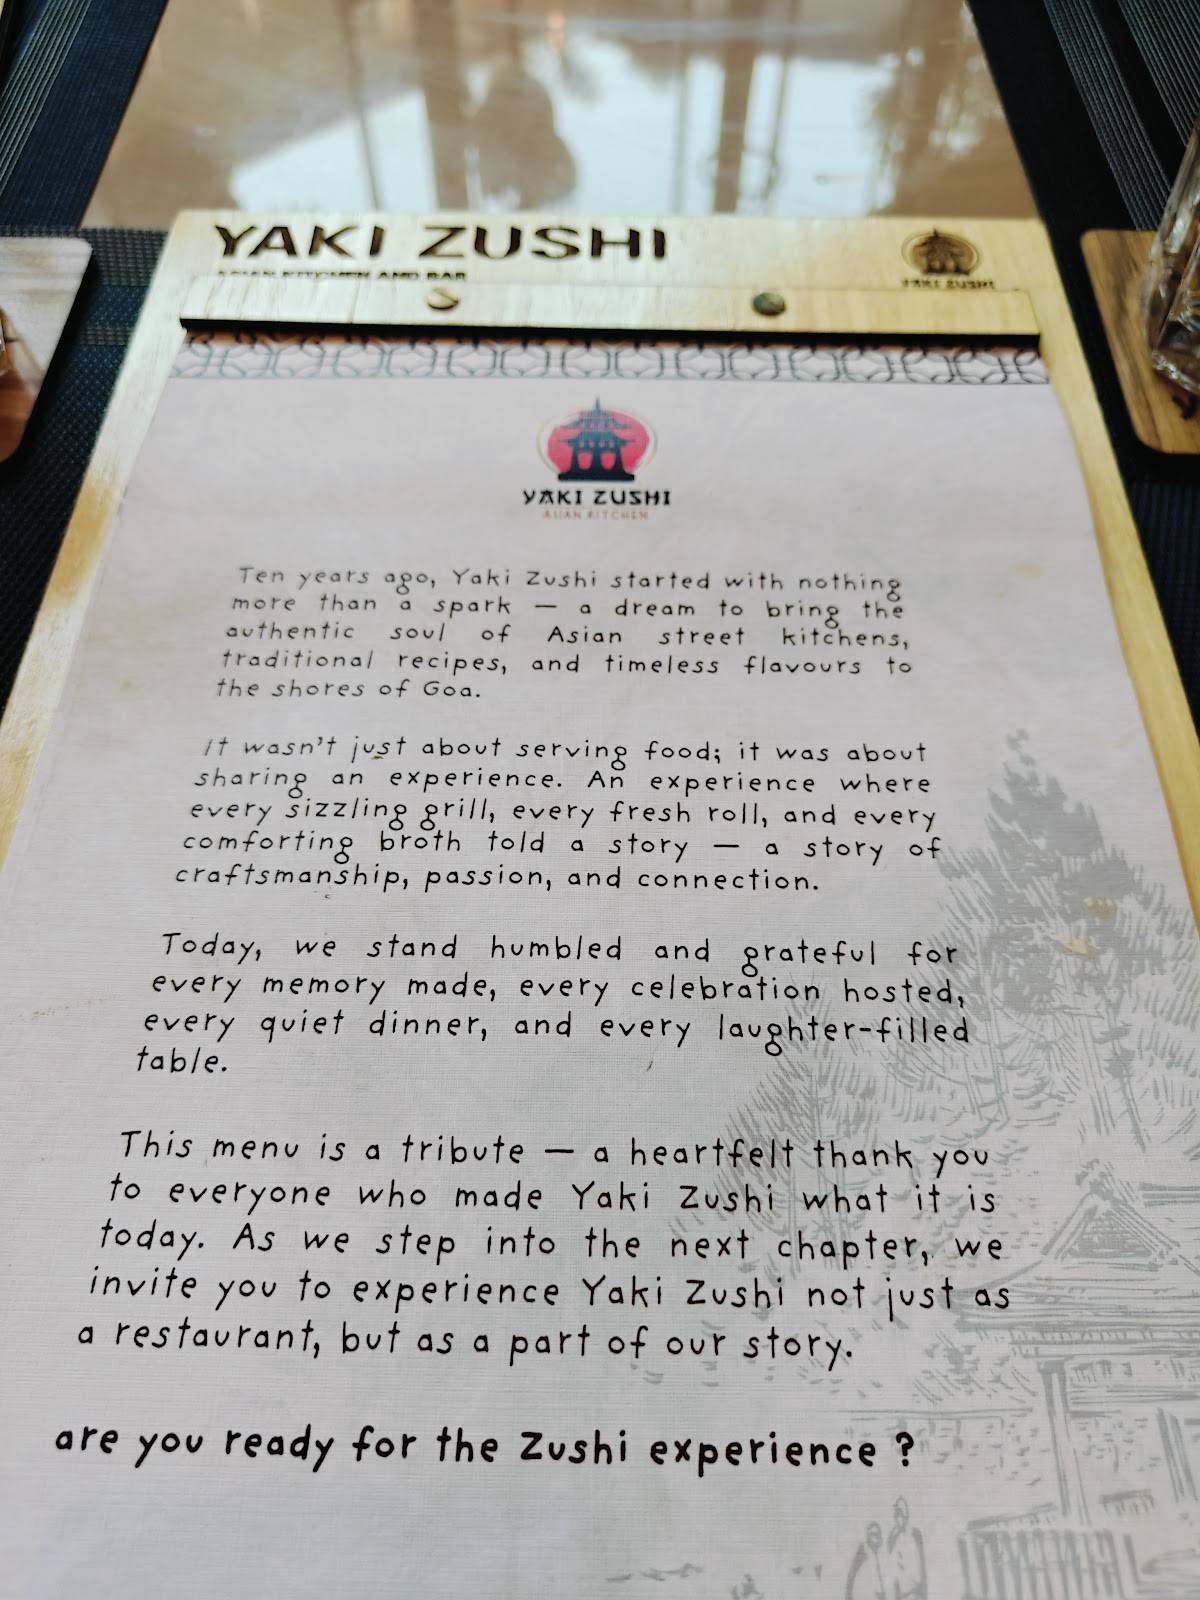 YAKI ZUSHI
ASIAN KITCHEN AND BAR
YAKI ZUSHI
YAKI ZUSHI
ASIAN KITCHEN
Ten years ago, Yaki Zushi started with nothing
more than a spark — a dream to bring the
authentic soul of Asian street kitchens,
traditional recipes, and timeless flavours to
the shores of Goa.
It wasn't just about serving food; it was about
sharing an experience. An experience where
every sizzling grill, every fresh roll, and every
comforting broth told a story — a story of
craftsmanship, passion, and connection.
Today, we stand humbled and grateful for
every memory made, every celebration hosted,
every quiet dinner, and every laughter-filled
table.
This menu is a tribute — a heartfelt thank you
to everyone who made Yaki Zushi what it is
today. As we step into the next chapter, we
invite you to experience Yaki Zushi not just as
a restaurant, but as a part of our story.
are you ready for the Zushi experience ?